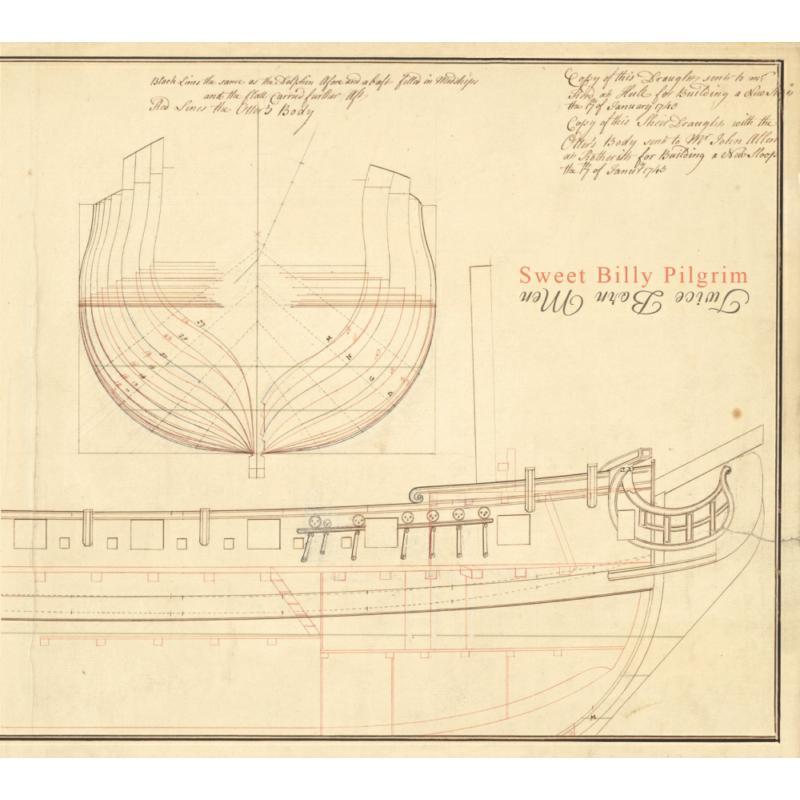 Black Lines the same as the Dolphin Afore and abaft filled in Midships
and the Clote Carried further Aft
Red Lines the Otter's Body
Copy of this Draught sent to mr
at Hull for Building a New
the of January 1743
Copy of this Sheer Draught with the
Otters Body sent to Mr John Allen
at Rotherith for Building a New Sloop
the of Janry 1743
Sweet Billy Pilgrim
Twice Born Men